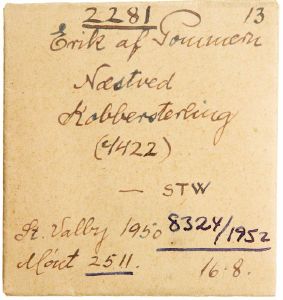 2281 13
Erik af Pommern
Næstved
Kobbersterling
(4422)
— STW
St. Valby 1950 8324/1952
Mønt 2511 16.8.